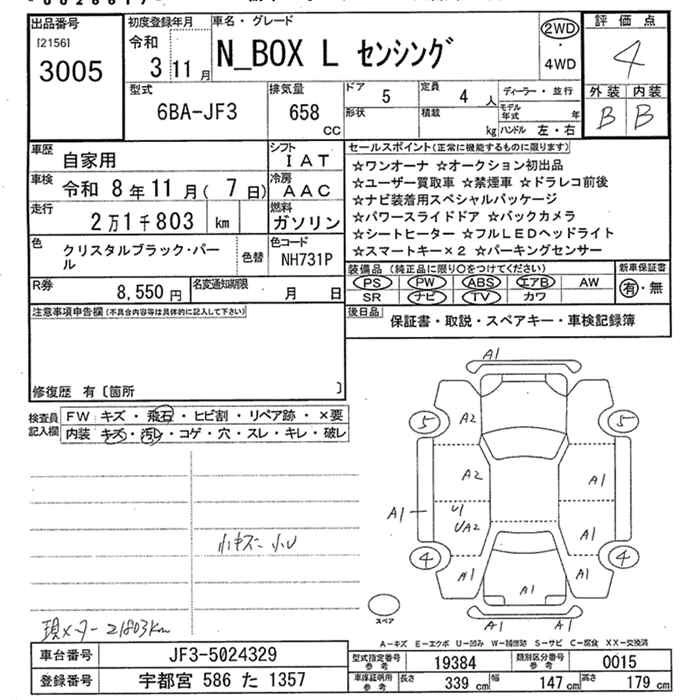 出品番号
[2156]
3005
初度登録年月
令和
3 11月
車名・グレード
N_BOX L センシング
2WD
・
4WD
評価点
4
外装 内装
B B
型式
6BA-JF3
排気量
658
cc
ドア
5
定員
4 人
形状
積載
kg
ディーラー・並行
モデル年式 年
ハンドル 左・右
車歴
自家用
シフト
IAT
車検
令和 8年11月( 7日)
冷房
AAC
走行
2万1千803 km
燃料
ガソリン
色
クリスタルブラック・パール
色替
色コード
NH731P
R券
8,550円
名変通知期限
月 日
セールスポイント(正常に機能するものに限ります)
☆ワンオーナ ☆オークション初出品
☆ユーザー買取車 ☆禁煙車 ☆ドラレコ前後
☆ナビ装着用スペシャルパッケージ
☆パワースライドドア ☆バックカメラ
☆シートヒーター ☆フルLEDヘッドライト
☆スマートキー×2 ☆パーキングセンサー
装備品(純正品に限り○をつけてください)
PS PW ABS エアB AW
SR ナビ TV カワ
新車保証書
有・無
後日品
保証書・取説・スペアキー・車検記録簿
注意事項申告欄(不具合内容等は具体的に記入して下さい)
修復歴 有〔箇所 〕
検査員記入欄
FW キズ・飛石・ヒビ割・リペア跡・×要
内装 キズ・汚レ・コゲ・穴・スレ・キレ・破レ
小キズ 小U
現メーター21803km
A1
5
A2
5
A2
A1
A1
U1
UA2
A1
4
A1
A1
A1
4
A1
A1
スペア
A-キズ E-エクボ U-凹み W-補修跡 S-サビ C-腐食 XX-交換済
車台番号
JF3-5024329
登録番号
宇都宮 586 た 1357
型式指定番号
参考
19384
類別区分番号
参考
0015
車庫証明用
参考
長さ
339 cm
幅
147 cm
高さ
179 cm